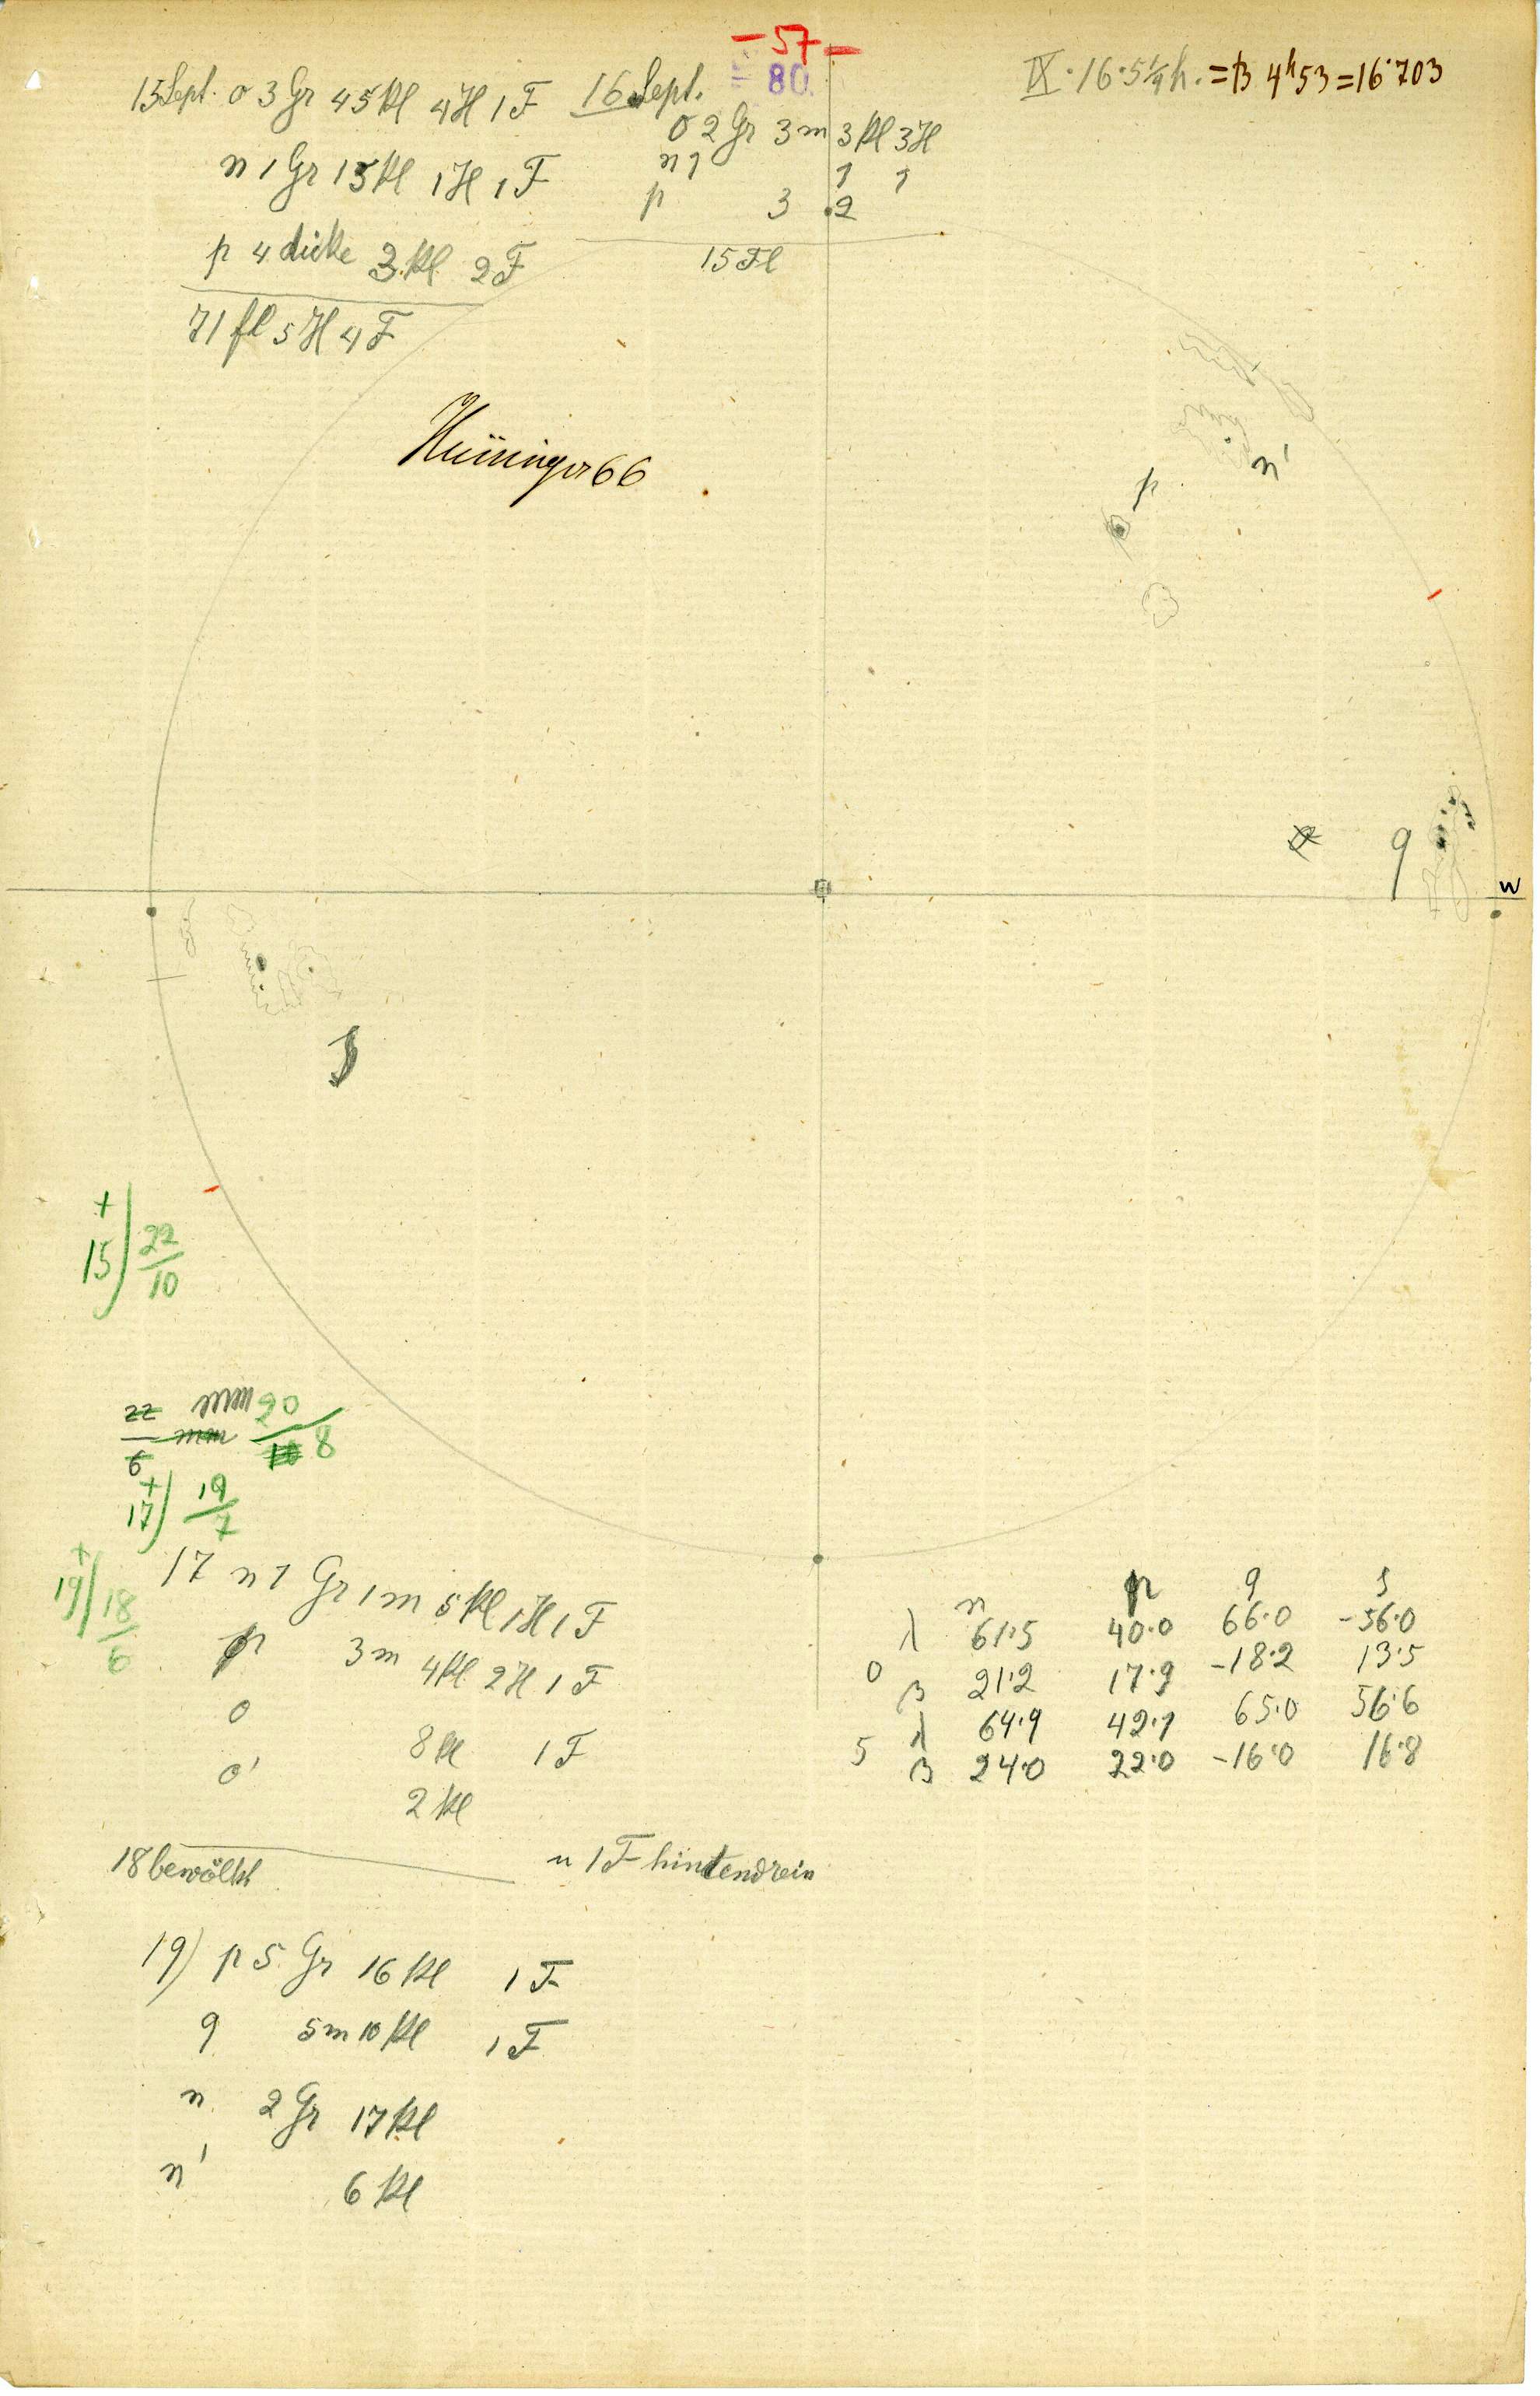 - 57 -
80
15 Sept. o 3 Gr 45 kl 4 H 1 F
n 1 Gr 15 kl 1 H 1 F
p 4 dicke 3 kl 2 F
71 fl 5 H 4 F
16 Sept.
o 2 Gr 3 m 3 kl 3 H
n 1 1 1
p 3 2
15 Fl
IX · 16 · 5 1/4 h. = B 4h 53 = 16·703
66
n'
p
q
w
+
15) 22/10
22/6 mm
mm 20/8
+
17) 19/7
+
19) 18/6
17 n 1 Gr 1 m 5 kl 1 H 1 F
p 3 m 4 kl 2 H 1 F
o 8 kl 1 F
o' 2 kl
18 bewölkt
n 1 F hintendrein
19) p 5 Gr 16 kl 1 F
q 5 m 10 kl 1 F
n 2 Gr 17 kl
n' 6 kl
n p q s
λ 61·5 40·0 66·0 -56·0
0 β 21·2 17·9 -18·2 13·5
λ 64·9 42·1 65·0 56·6
5 β 24·0 22·0 -16·0 16·8